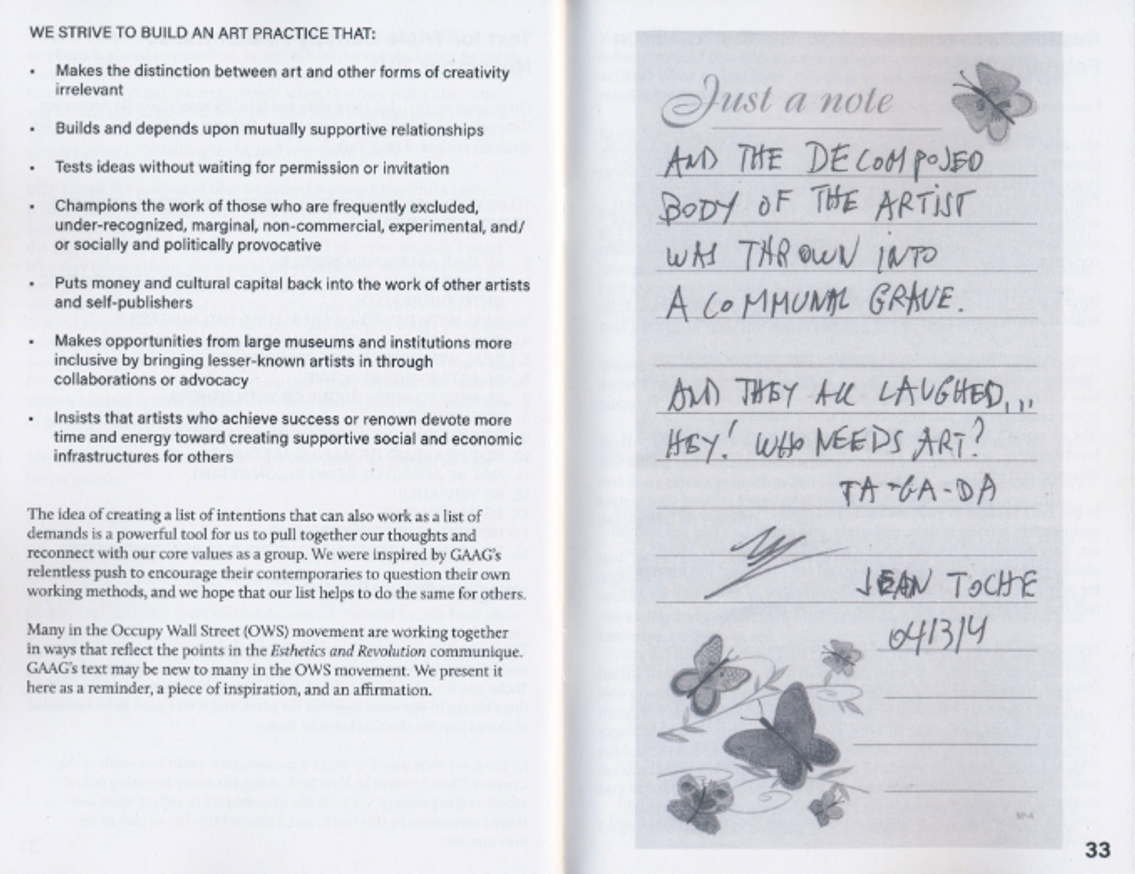 WE STRIVE TO BUILD AN ART PRACTICE THAT:
• Makes the distinction between art and other forms of creativity
irrelevant
• Builds and depends upon mutually supportive relationships
• Tests ideas without waiting for permission or invitation
• Champions the work of those who are frequently excluded,
under-recognized, marginal, non-commercial, experimental, and/
or socially and politically provocative
• Puts money and cultural capital back into the work of other artists
and self-publishers
• Makes opportunities from large museums and institutions more
inclusive by bringing lesser-known artists in through
collaborations or advocacy
• Insists that artists who achieve success or renown devote more
time and energy toward creating supportive social and economic
infrastructures for others
The idea of creating a list of intentions that can also work as a list of
demands is a powerful tool for us to pull together our thoughts and
reconnect with our core values as a group. We were inspired by GAAG's
relentless push to encourage their contemporaries to question their own
working methods, and we hope that our list helps to do the same for others.
Many in the Occupy Wall Street (OWS) movement are working together
in ways that reflect the points in the Esthetics and Revolution communique.
GAAG's text may be new to many in the OWS movement. We present it
here as a reminder, a piece of inspiration, and an affirmation.
Just a note
AND THE DECOMPOSED
BODY OF THE ARTIST
WAS THROWN INTO
A COMMUNAL GRAVE.
AND THEY ALL LAUGHED...
HEY! WHO NEEDS ART?
TA-GA-DA
JEAN TOCHE
04/3/4
33